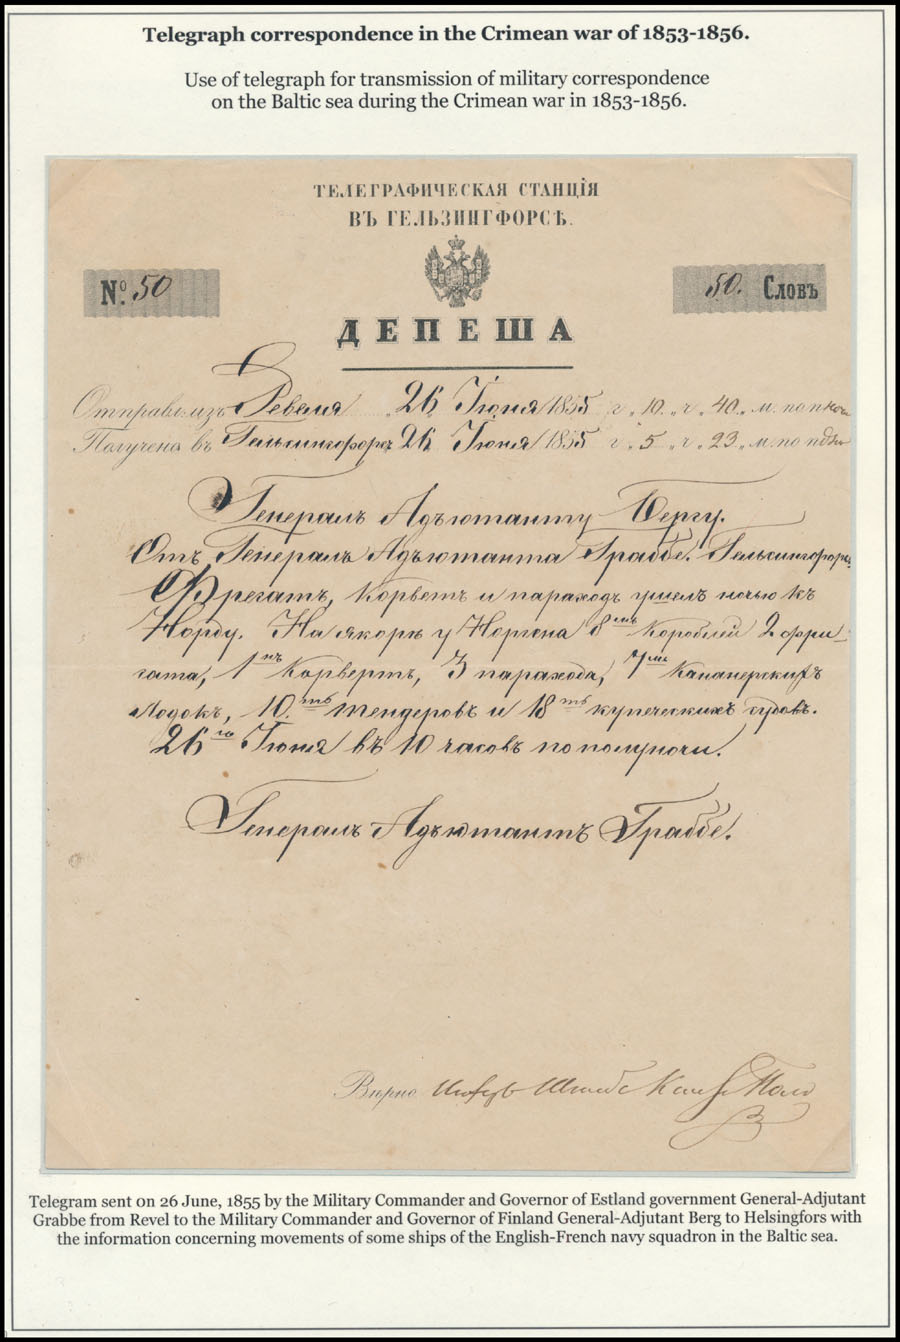 Telegraph correspondence in the Crimean war of 1853-1856.
Use of telegraph for transmission of military correspondence
on the Baltic sea during the Crimean war in 1853-1856.
ТЕЛЕГРАФИЧЕСКАЯ СТАНЦІЯ
ВЪ ГЕЛЬЗИНГФОРСѢ.
№ 50
50. Словъ
ДЕПЕША
Отправл. изъ Ревеля „26„ Іюня 1855 г „10„ ч „40„ м. по полночи
Получена въ Гельсингфорсѣ 26 Іюня 1855 г „5„ ч „23„ м. по полдни
Генералъ Адъютанту Бергу.
Отъ Генералъ Адъютанта Граббе. Гельсингфорсъ.
Фрегатъ, Корветъ и параходъ ушелъ ночью къ
Норду. На якорѣ у Наргена 8мь Кораблей 2 фри-
гата, 1нъ Корветъ, 3 парахода, 7мь Канонерскихъ
Лодокъ, 10.ть тендеровъ и 18ть купеческихъ судовъ.
26го Іюня въ 10 часовъ по полуночи.
Генералъ Адъютантъ Граббе.
Вѣрно
Telegram sent on 26 June, 1855 by the Military Commander and Governor of Estland government General-Adjutant
Grabbe from Revel to the Military Commander and Governor of Finland General-Adjutant Berg to Helsingfors with
the information concerning movements of some ships of the English-French navy squadron in the Baltic sea.